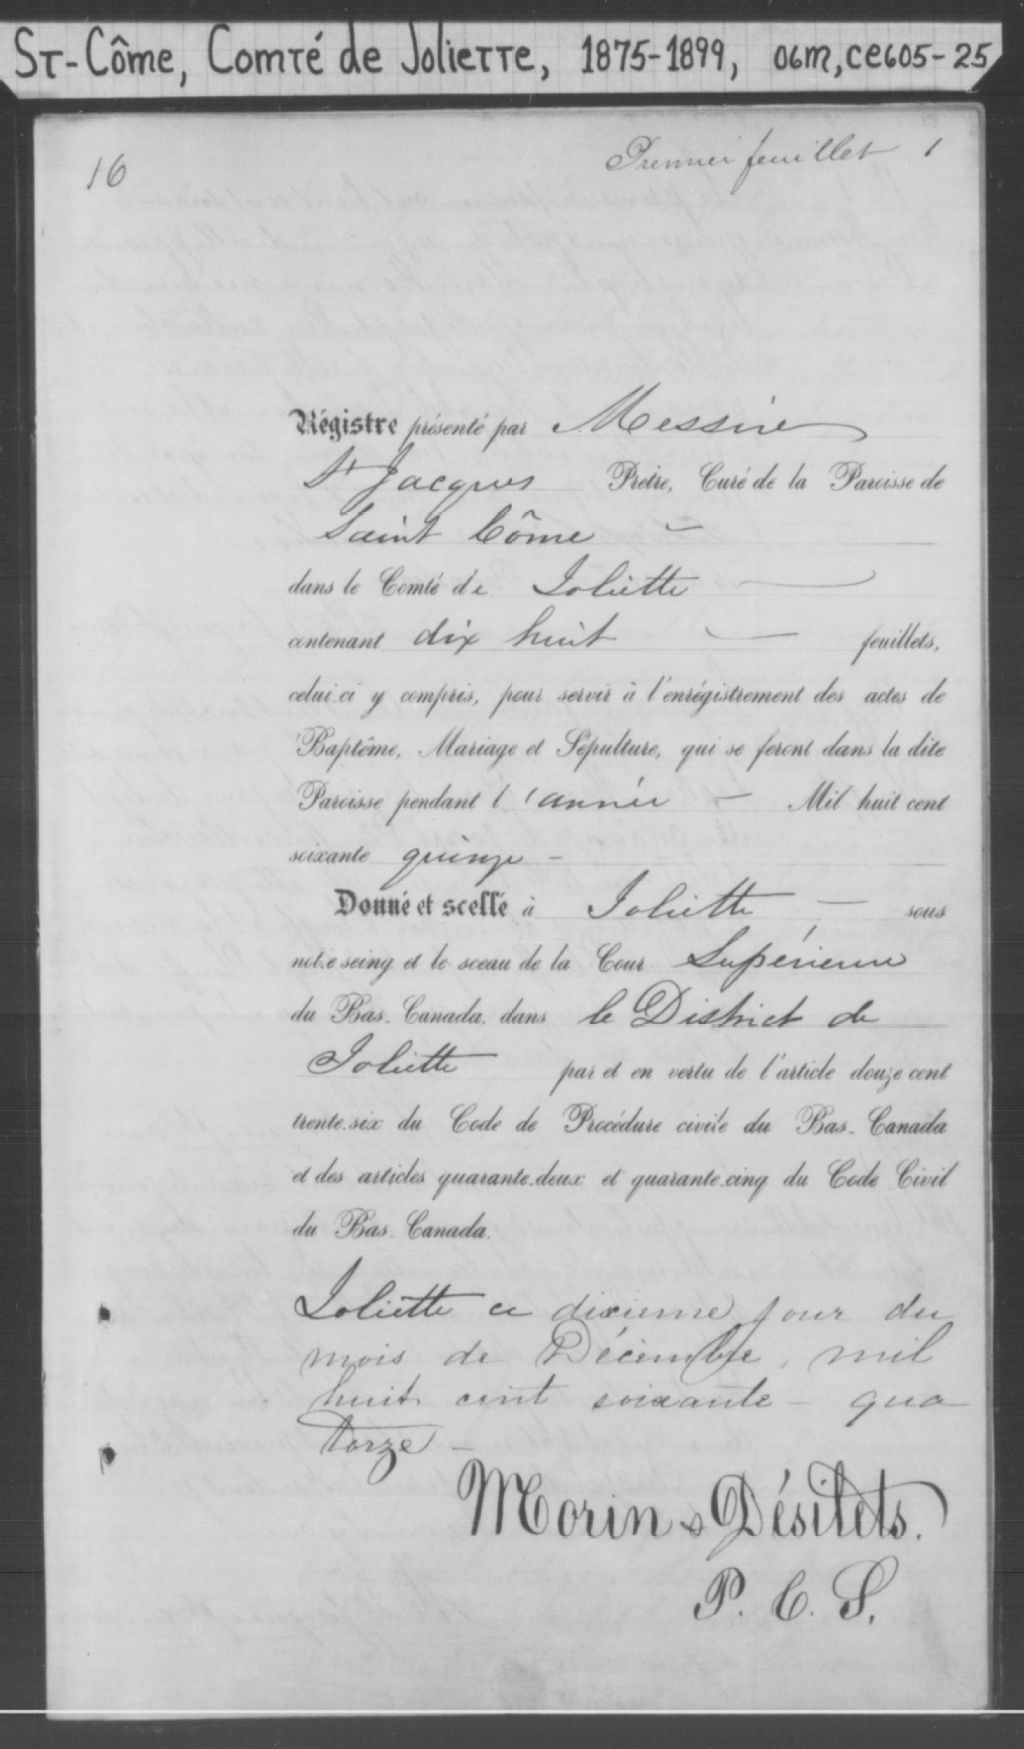 St-Côme, Comté de Joliette, 1875-1899, 06M, CE605-25
16
Premier feuillet 1
Régistre présenté par Messire
St Jacques Prêtre, Curé de la Paroisse de
Saint Côme
dans le Comté de Joliette
contenant dix huit feuillets,
celui ci y compris, pour servir à l'enrégistrement des actes de
Baptême, Mariage et Sépulture, qui se feront dans la dite
Paroisse pendant l'année Mil huit cent
soixante quinze
Donné et scellé à Joliette sous
notre seing et le sceau de la Cour Supérieure
du Bas-Canada, dans le District de
Joliette par et en vertu de l'article douze cent
trente-six du Code de Procédure civile du Bas-Canada
et des articles quarante-deux et quarante-cinq du Code Civil
du Bas-Canada.
Joliette ce dixieme jour du
mois de Décembre, mil
huit cent soixante-qua
torze -
Morin & Désilets.
P. C. S.